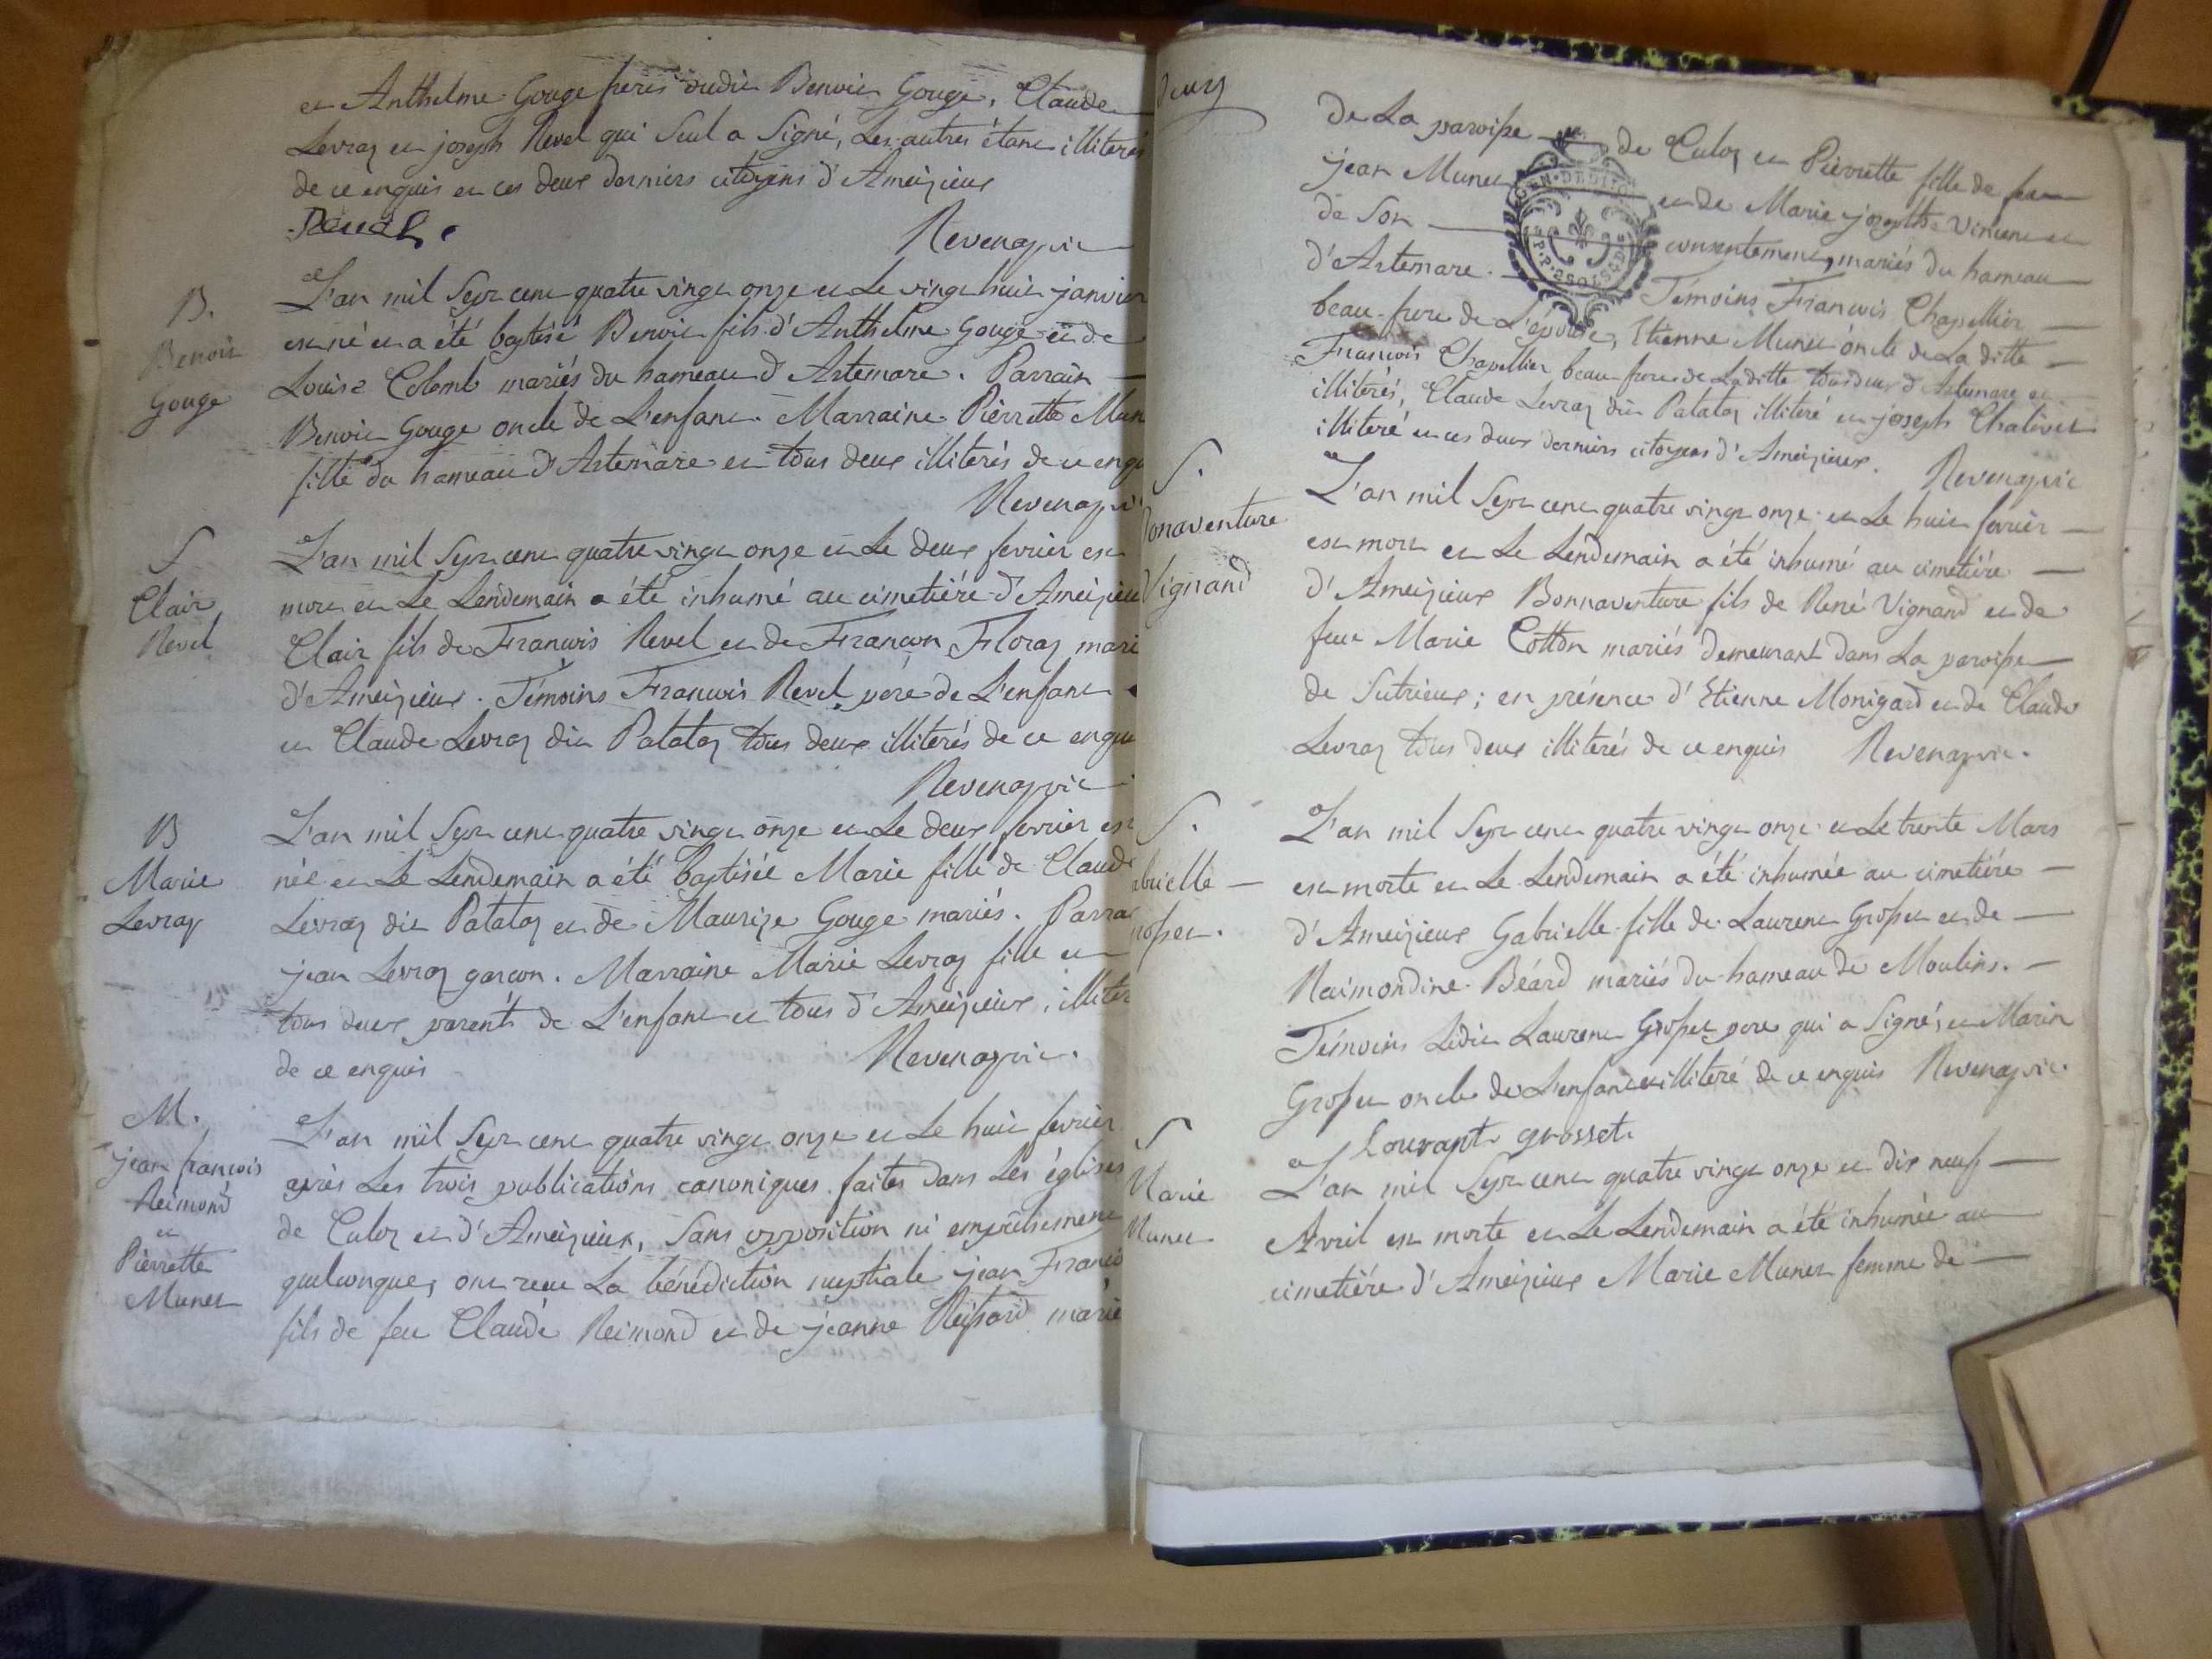 et Anthelme Gouge freres dudit Benoit Gouge, Claude
Levraz et joseph Revel qui Seul a Signé, Les autres étant illiterés
de ce enquis et ces deux derniers citoyens d'Ameizieux
Revenaz vic
B.
Benoit
Gouge
L'an mil Sept cent quatre vingt onze et Le vingt huit janvier
est né et a été baptisé Benoit fils d'Anthelme Gouge et de
Louise Colomb mariés du hameau d'Artemare. Parrain
Benoit Gouge oncle de L'enfant. Marraine Pierrette Mun
fille du hameau d'Artemare et tous deux illiterés de ce enqu
Revenaz vi
S
Clair
Revel
L'an mil Sept cent quatre vingt onze et Le deux fevrier est
mort et Le Lendemain a été inhumé au cimetiére d'Ameizieu
Clair fils de Francois Revel et de Françon Floraz mari
d'Ameizieux. Témoins Francois Revel pere de L'enfant
et Claude Levraz dit Patataz tous deux illiterés de ce enqui
Revenaz vic
B
Marie
Levraz
L'an mil Sept cent quatre vingt onze et Le deux fevrier est
née et Le Lendemain a été baptisée Marie fille de Claude
Levraz dit Patataz et de Maurize Gouge mariés. Parra
jean Levraz garçon. Marraine Marie Levraz fille et
tous deux parents de L'enfant et tous d'Ameizieux, illiter
de ce enquis
Revenaz vic.
M.
jean francois
Reimond
et
Pierrette
Munet
L'an mil Sept cent quatre vingt onze et Le huit fevrier
après Les trois publications canoniques faites dans Les églises
de Culoz et d'Ameizieux, Sans opposition ni empêchement
quelconque, ont reçu La bénédiction nuptiale jean Franco
fils de feu Claude Reimond et de jeanne Reissard marié
deux
de La paroisse de Culoz et Pierrette fille de feu
jean Munet et de Marie josephte Vincent et
de Son consentement, mariés du hameau
d'Artemare. Témoins Francois Chapellier
beau-frere de L'épouse, Etienne Munet oncle de La ditte
Francois Chapellier beau frere de Laditte tous deux d'Artemare et
illiterés, Claude Levraz dit Patataz illiteré et joseph Chalivet
illiteré et ces deux derniers citoyens d'Ameizieux.
Revenaz vic
S.
Bonaventure
Vignand
L'an mil Sept cent quatre vingt onze et Le huit fevrier
est mort et Le Lendemain a été inhumé au cimetiére
d'Ameizieux Bonnaventure fils de René Vignand et de
feue Marie Cotton mariés demeurant dans La paroisse
de Sutrieux; en présence d'Etienne Monigard et de Claude
Levraz tous deux illiterés de ce enquis Revenaz vic.
S.
abrielle
rosset.
L'an mil Sept cent quatre vingt onze et Le trente Mars
est morte et Le Lendemain a été inhumée au cimetiére
d'Ameizieux Gabrielle fille de Laurent Grosset et de
Raimondine Béard mariés du hameau de Moulins.
Témoins Ledit Laurent Grosset pere qui a Signé, et Marin
Grosset oncle de L'enfant illiteré de ce enquis Revenaz vic.
Lourant grosset
S
Marie
Munet
L'an mil Sept cent quatre vingt onze et dix neuf
Avril est morte et Le Lendemain a été inhumée au
cimetiére d'Ameizieux Marie Munet femme de